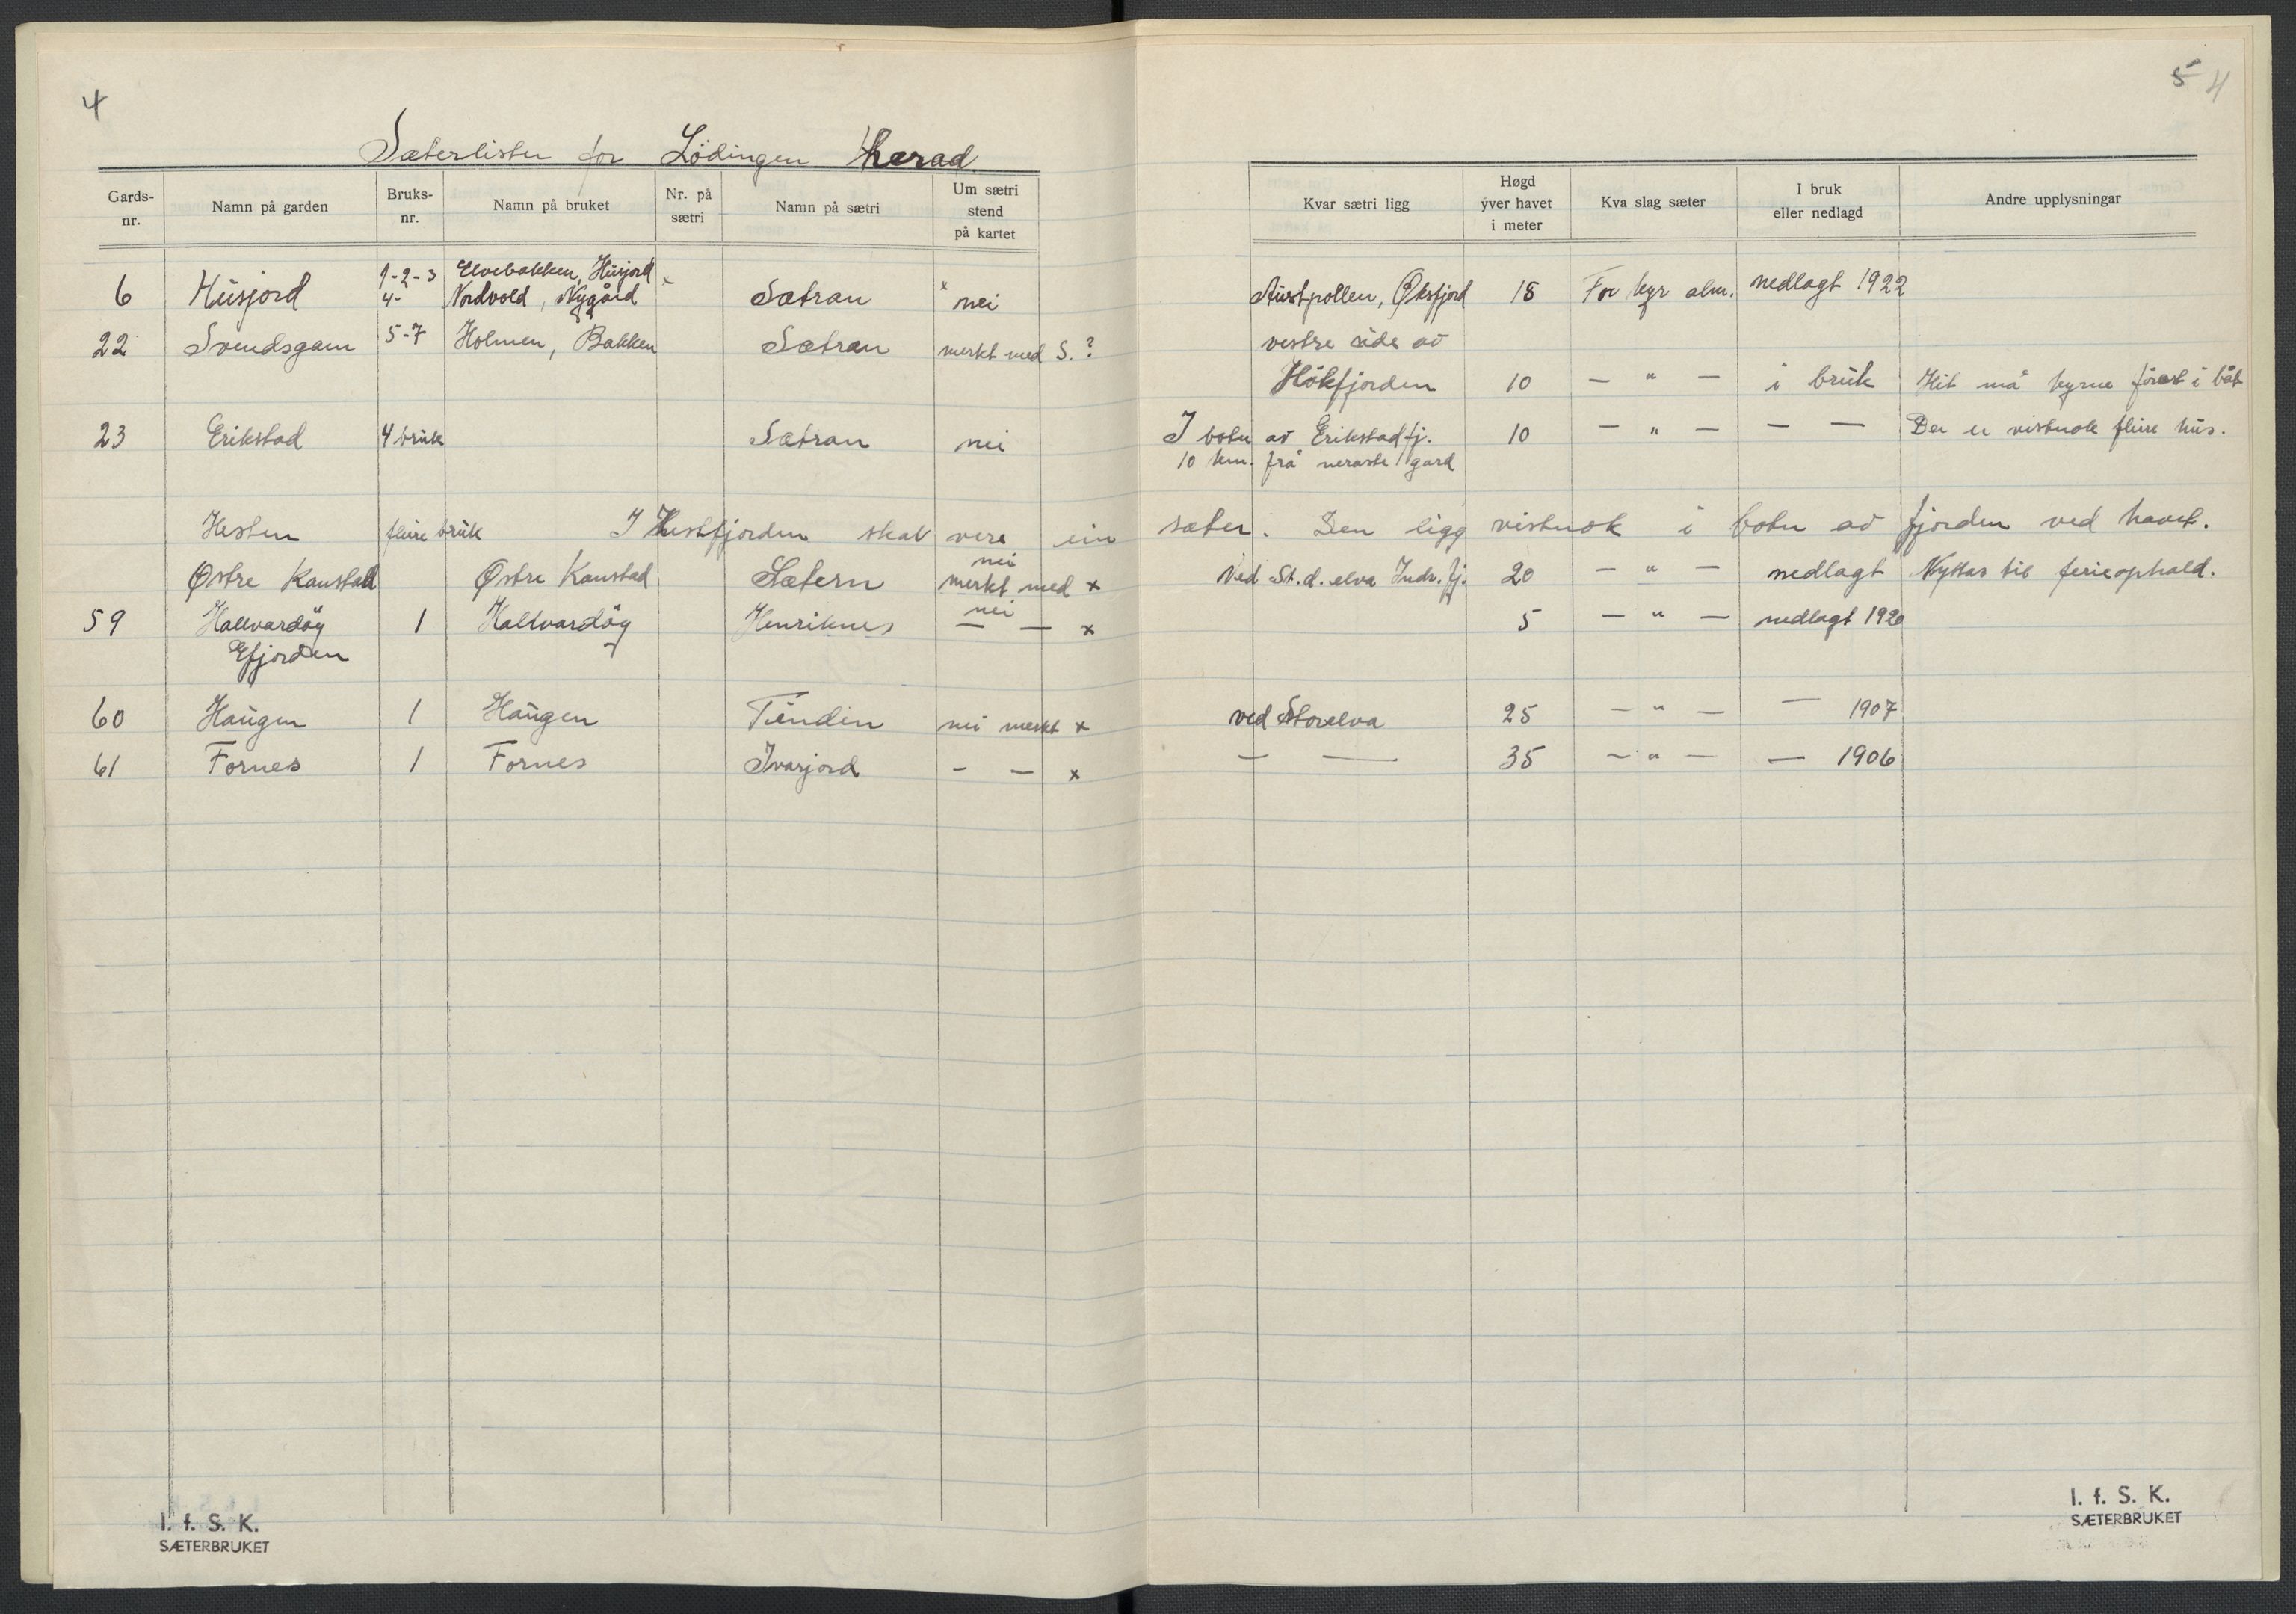 4
5 4
Sæterlister for Lödingen herad
Gards-nr. Namn på garden Bruks-nr. Namn på bruket Nr. på sætri Namn på sætri Um sætri stend på kartet Kvar sætri ligg Høgd yver havet i meter Kva slag sæter I bruk eller nedlagd Andre upplysningar
1-2-3 Elvebakken, Husjord
6 Husjord 4- Nordvold, Nygård Sætran nei Austpollen, Øksfjord 18 For kyr alm. nedlagt 1922
22 Svendsgam 5-7 Holmen, Bakken Sætran merkt med S.? vestre side av
Hökfjorden 10 — " — i bruk Hit må kyrne förast i båt
23 Erikstad 4 bruk Sætran nei I botn av Erikstadfj. 10 — " — — — Der er vistnok fleire hus.
10 km. frå næraste gard
Hesten fleire bruk I Hestfjorden skal vere ein sæter. Den ligg vistnok i botn av fjorden ved havet.
nei
Østre Kanstad Østre Kanstad Sætern merkt med x Ved St.d. elva Indr. fj. 20 — " — nedlagt Nyttas til ferieophald.
nei
59 Hallvardöy 1 Hallvardöy Henriknes — — x 5 — " — nedlagt 1920
Efjorden
60 Haugen 1 Haugen Tindin nei merkt x ved Storelva 25 — " — — 1907
61 Fornes 1 Fornes Ivarjord — — x — — 35 — " — — 1906
I. f. S. K.
SÆTERBRUKET
I. f. S. K.
SÆTERBRUKET